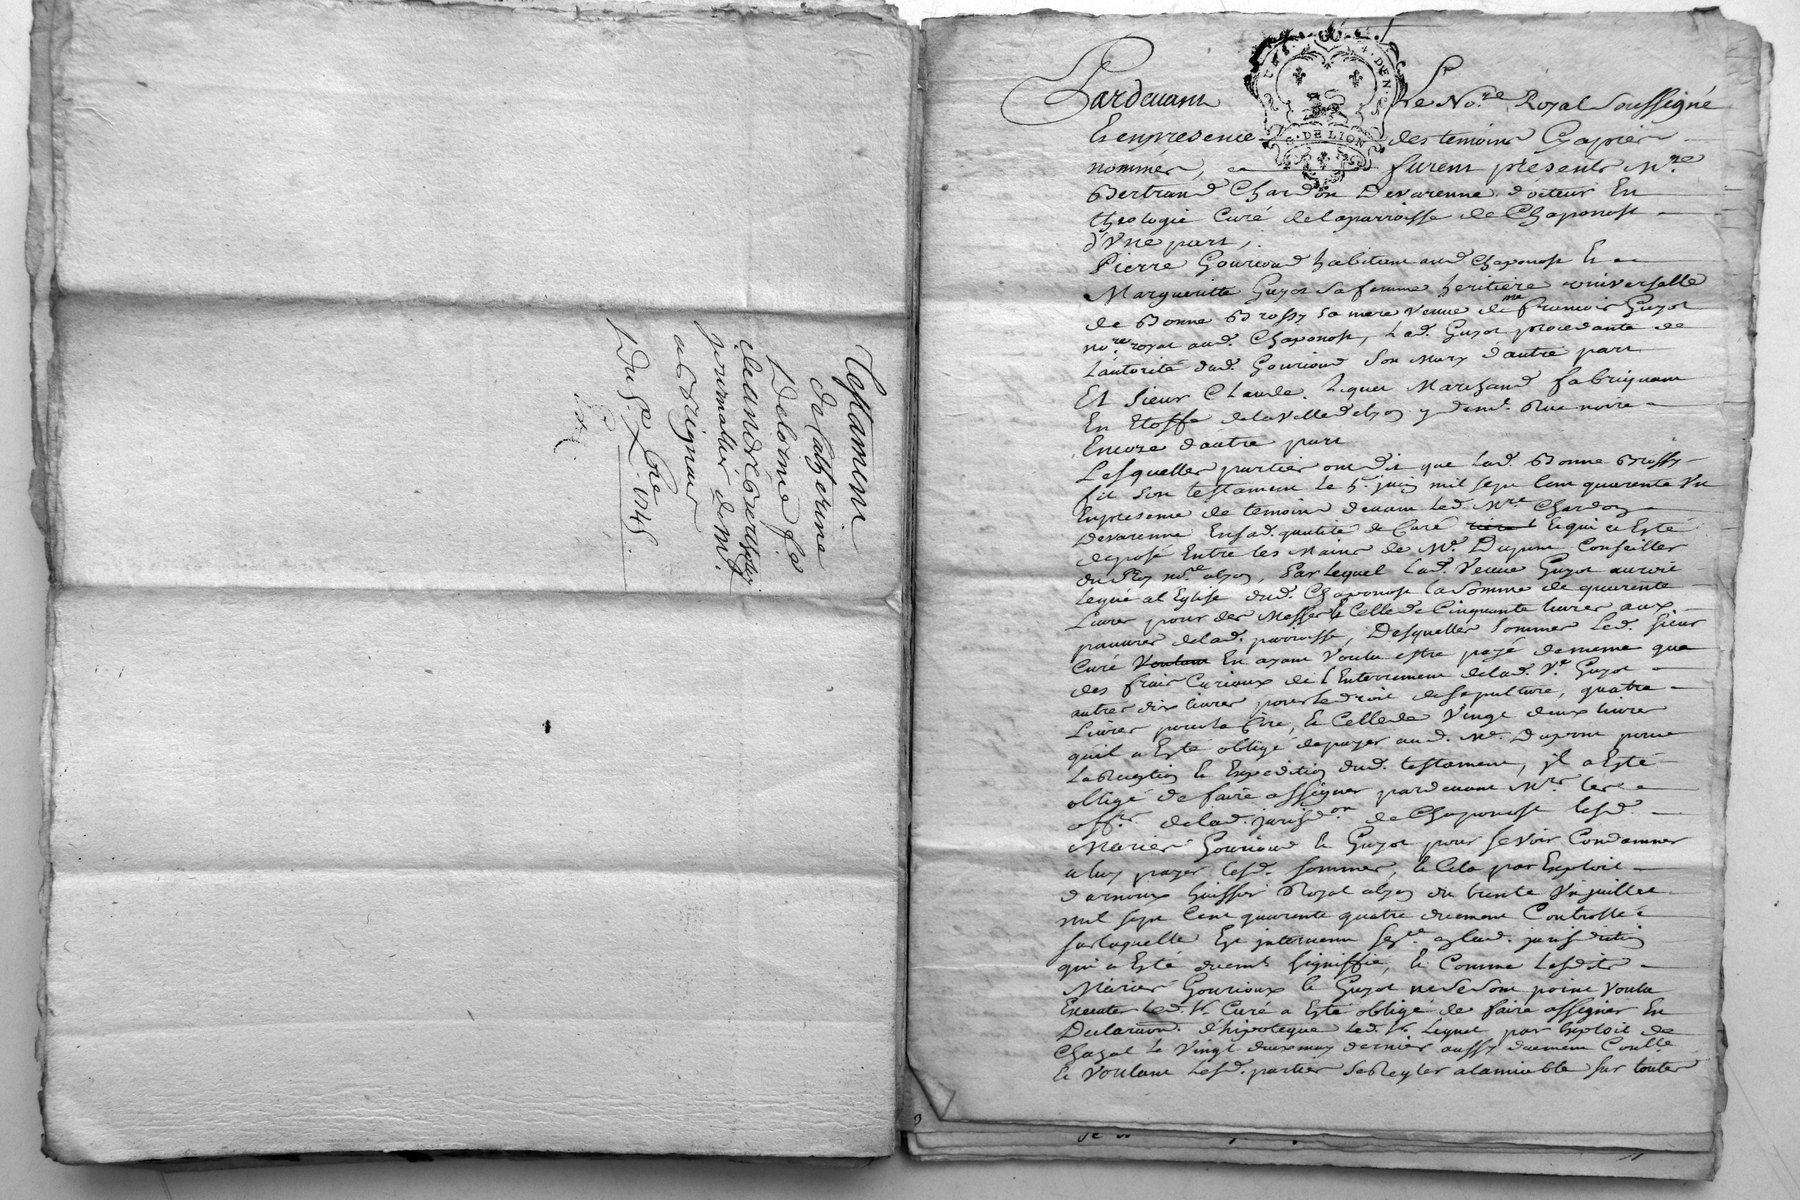 Testament
de Catherine
Delorme fe
journalier de Mr.
au Vignau
Du 9e 7bre 1745.
G. DE LION
Pardevant Le No.re Royal Soussigné
Et en presence des temoins Cy apres
nommés, furent présents Mre
Bertrand Chardon Devarenne docteur En
theologie Curé de la parroisse de Chaponost
d'Une part,
Pierre Gourioud habitant aud. Chaponost Et
Margueritte Guyot sa femme heritiére universelle
de Bonne Brossy sa mere Veuve de me francois Guyot
nore royal aud. Chaponost, Lad. Guyot procedante de
Lautorité dud. Gourioud Son Mary d'autre part
Et Sieur Claude Liquet Marchand fabriquant
En Etoffe de la Ville de Lyon y demt. Rue noire
Encore d'autre part
Lesquelles parties ont dit que Lad. Bonne Brossy
fit Son testament Le 5e. juin mil Sept Cent quarente Un
En presence de temoins devant Led. Mre Chardon
Devarenne En sad. qualité de Curé Et qui a Esté
deposé Entre les Mains de Me. Dupont Conseiller
du Roy nore. a Lyon, Par Lequel Lad. Veuve Guyot auroit
Legué a l'Eglise dud. Chaponost La Somme de quarente
Livres pour des Messes & Celle de Cinquante livres aux
pauvres de lad. parroisse, Desquelles Sommes Led. Sieur
Curé Voulant En ayant Voulu estre payé de meme que
des frais Curiaux de l'Enterrement de lad. Ve Guyot
autres dix livres pour le droit de sepulture, quatre
Livres pour la Cire, & Celle de Vingt deux livres
quil a Esté obligé de payer aud. Me. Dupont pour
La Reception & Expedition dud. testament, il a Esté
obligé de faire assigner pardevant Mrs les
offrs. de la d. jurisdon de Chaponost Lesd.
Mariés Gourioud & Guyot pour Se Voir Condamner
a luy payer Lesd. Sommes, & Cela par Exploit
d'arnoux huissier Royal a Lyon du trente Un juillet
mil Sept Cent quarente quatre duement Controllé
Sur laquelle Est intervenu Sece en lad. jurisdiction
qui a Esté duemt Signiffié, & Comme Lesdits
Mariés Gourioux & Guyot ne Se Sont point Voulu
Executer Led. Sr. Curé a Esté obligé de faire assigner En
Declaraon. d'hipoteque Led. Sr. Liquet par Exploit de
Chazal Le Vingt deux may dernier aussy duement Conllé
Et Voulant Lesd. parties Se Regler a lamiable Sur toutes